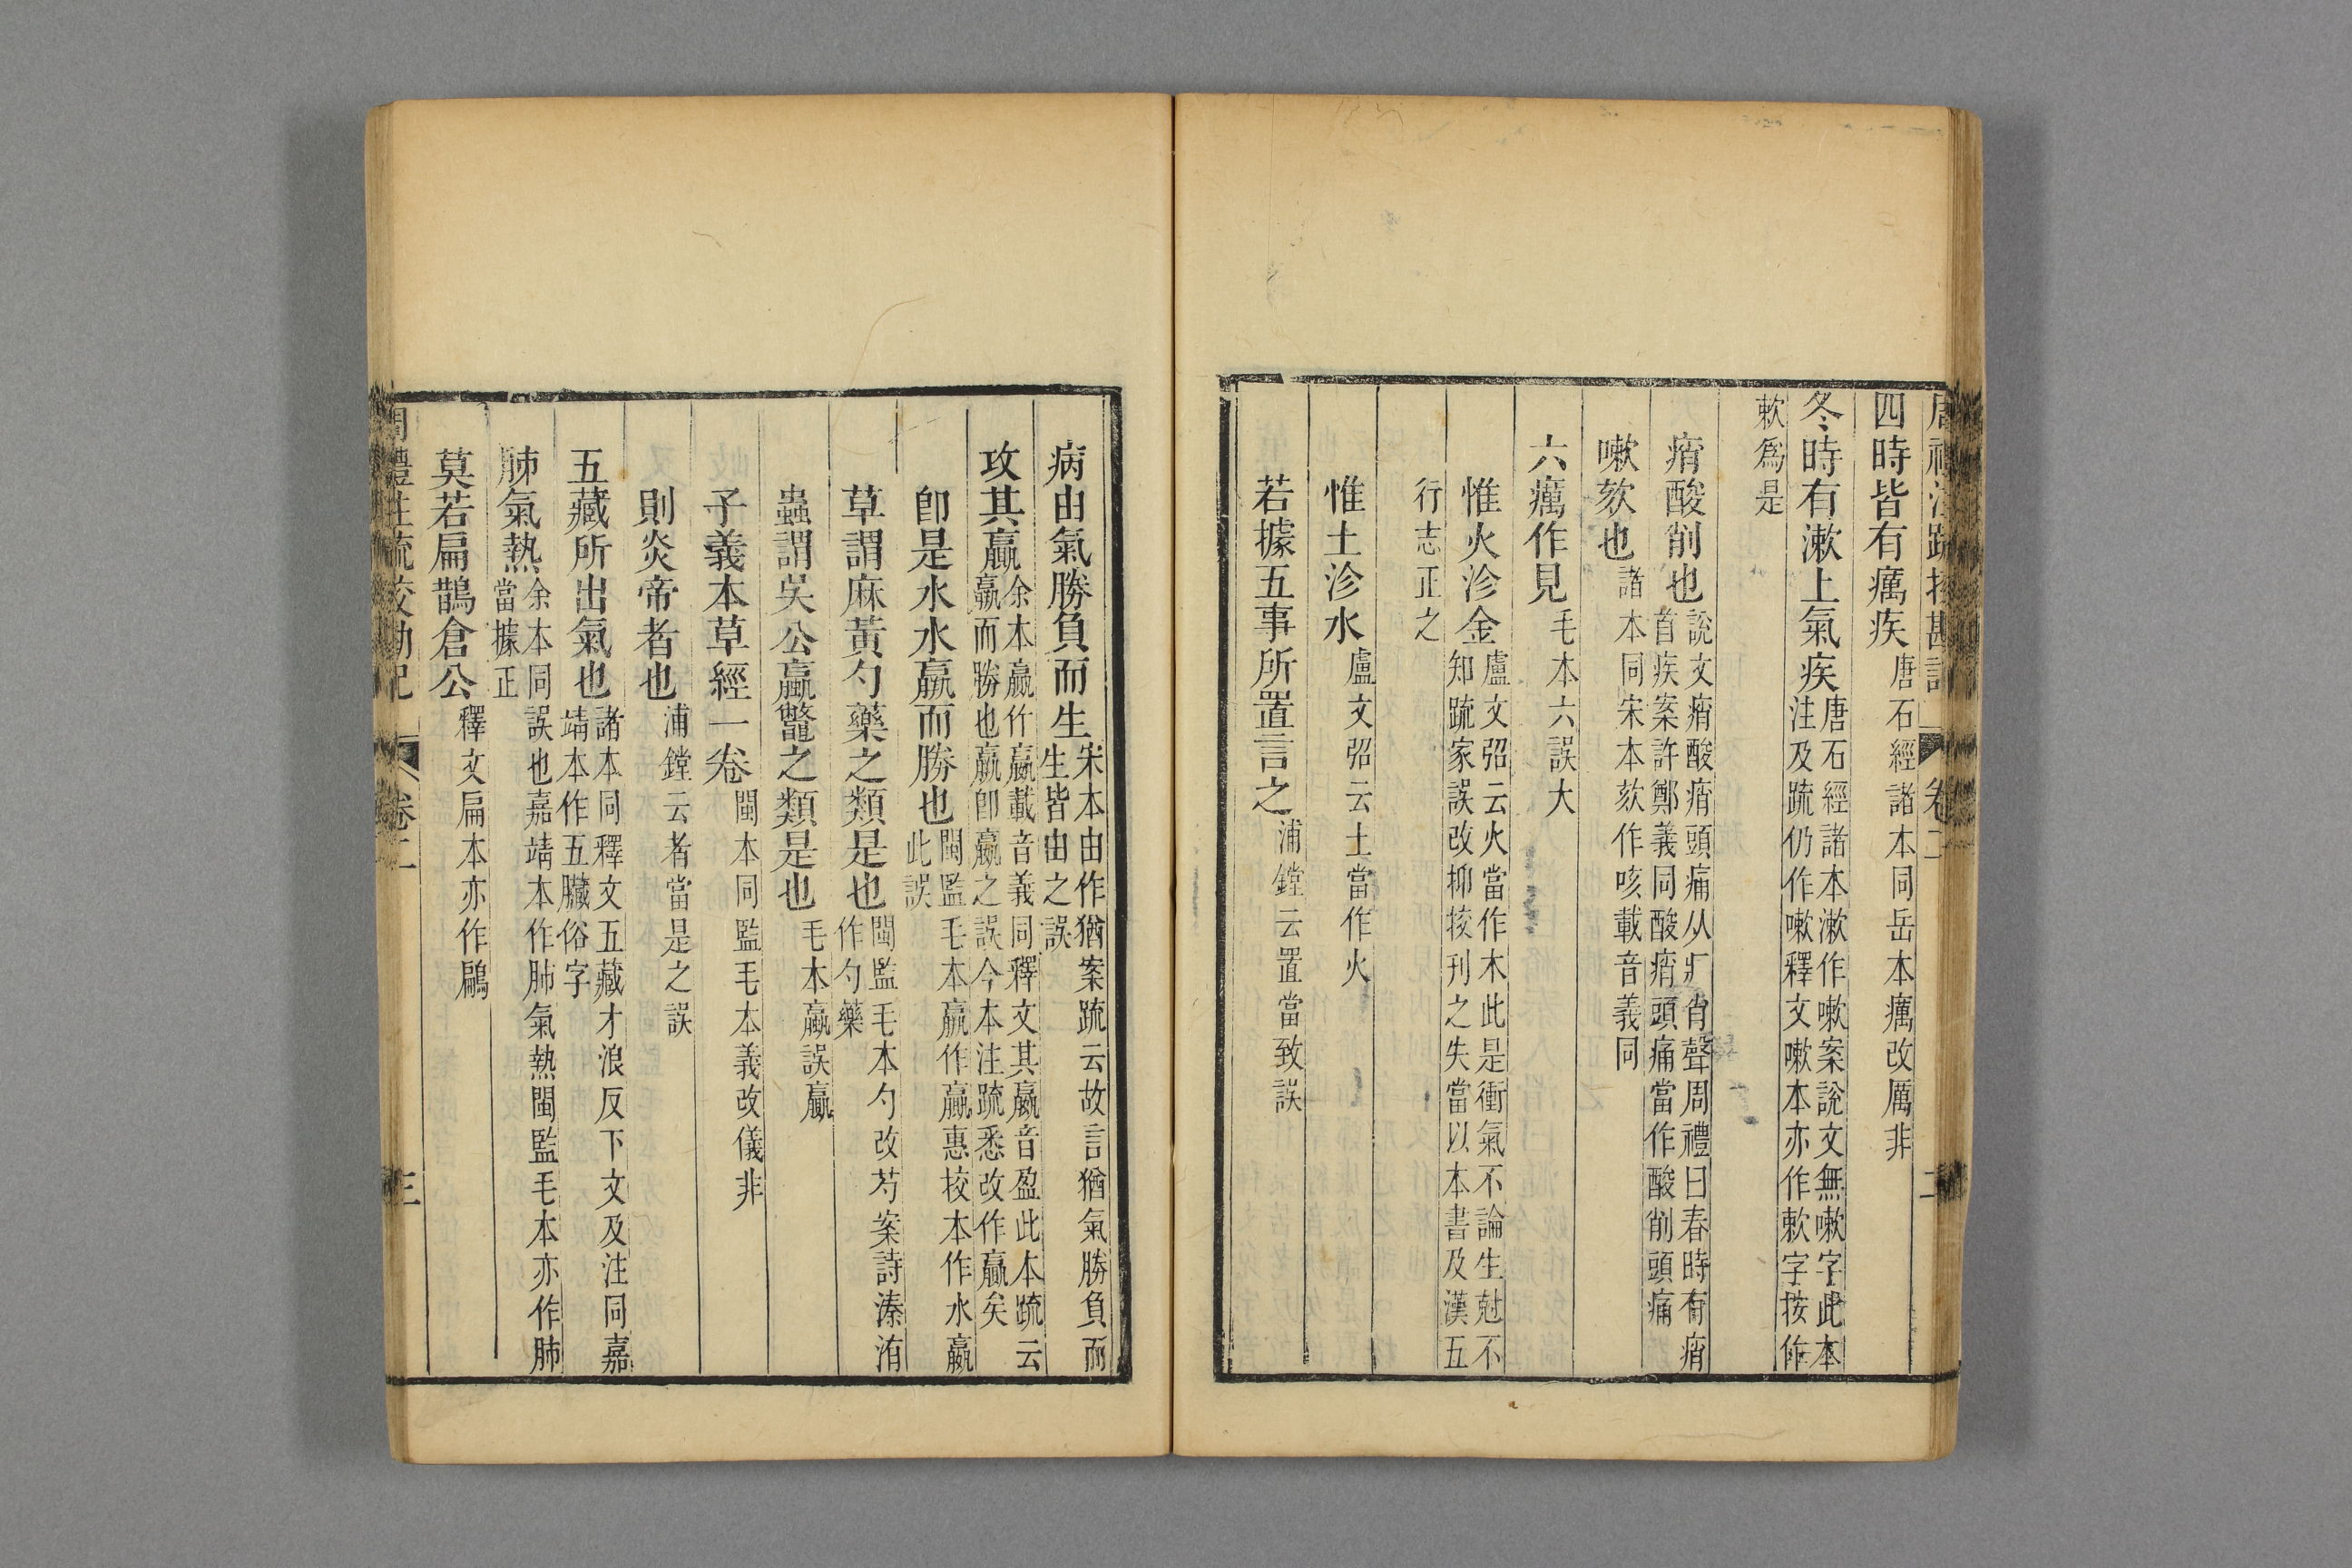 周禮注疏挍勘記 卷二 二
四時皆有癘疾唐石經諸本同岳本癘改厲非
冬時有漱上氣疾唐石經諸本漱作嗽案說文無嗽字此本
注及疏仍作嗽釋文嗽本亦作欶字按作
欶爲是
痟酸削也說文痟酸痟頭痛从疒肖聲周禮曰春時有痟
首疾案許鄭義同酸痟頭痛當作酸削頭痛
嗽欬也諸本同宋本欬作咳載音義同
六癘作見毛本六誤大
惟火沴金盧文弨云火當作木此是衝氣不論生尅不
知疏家誤改抑挍刊之失當以本書及漢五
行志正之
惟土沴水盧文弨云土當作火
若據五事所置言之浦鏜云置當致誤
病由氣勝負而生宋本由作猶案疏云故言猶氣勝負而
生皆由之誤
攻其羸余本羸作嬴載音義同釋文其嬴音盈此本疏云
羸而勝也羸卽嬴之誤今本注疏悉改作贏矣
卽是水水羸而勝也閩監毛本羸作贏惠挍本作水嬴
此誤
草謂麻黃勺藥之類是也閩監毛本勺改芍案詩溱洧
作勺藥
蟲謂吳公蠃鼈之類是也毛本蠃誤贏
子義本草經一卷閩本同監毛本義改儀非
則炎帝者也浦鏜云者當是之誤
五藏所出氣也諸本同釋文五藏才浪反下文及注同嘉
靖本作五臟俗字
肺氣熱余本同誤也嘉靖本作肺氣熱閩監毛本亦作肺
當據正
莫若扁鵲倉公釋文扁本亦作鶣
周禮注疏挍勘記 卷二 三